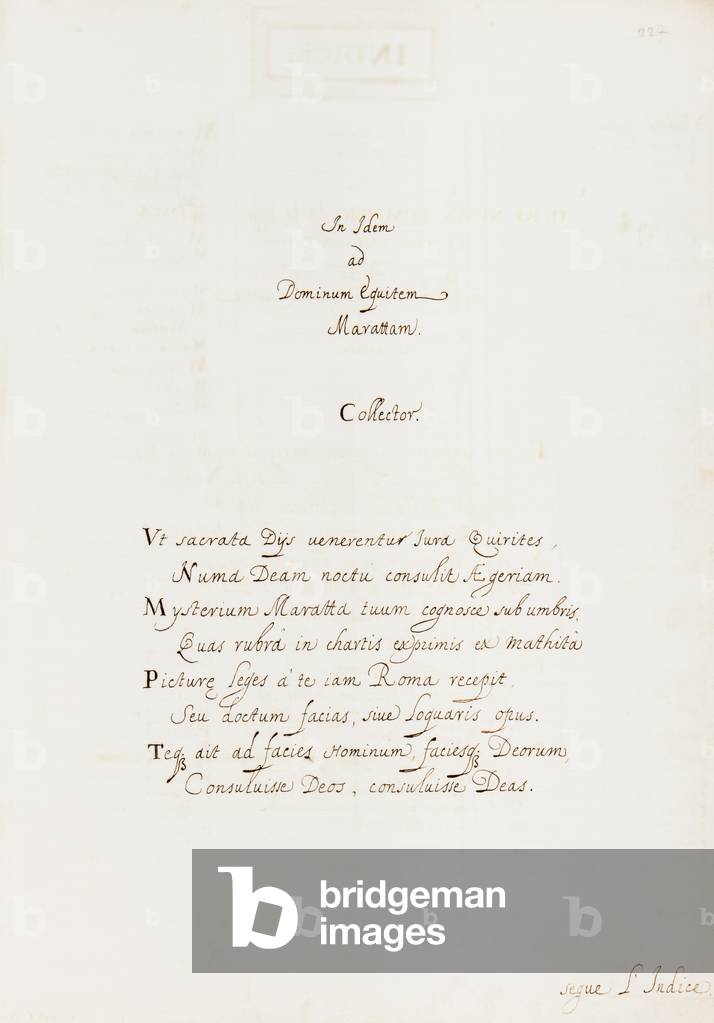 227
In Idem
ad
Dominum Equitem
Marattam.
Collector.
Vt sacrata Dijs uenerentur Iura Quirites,
Numa Deam noctù consulit Ægeriam.
Mysterium Maratta tuum cognosce sub umbris,
Quas rubrâ in chartis exprimis ex mathitâ
Picturę leges à te iam Roma recepit,
Seu doctum facias, siue loquaris opus.
Teq; ait ad facies Hominum, faciesq; Deorum,
Consuluisse Deos, consuluisse Deas.
bridgeman
images
segue l'Indice